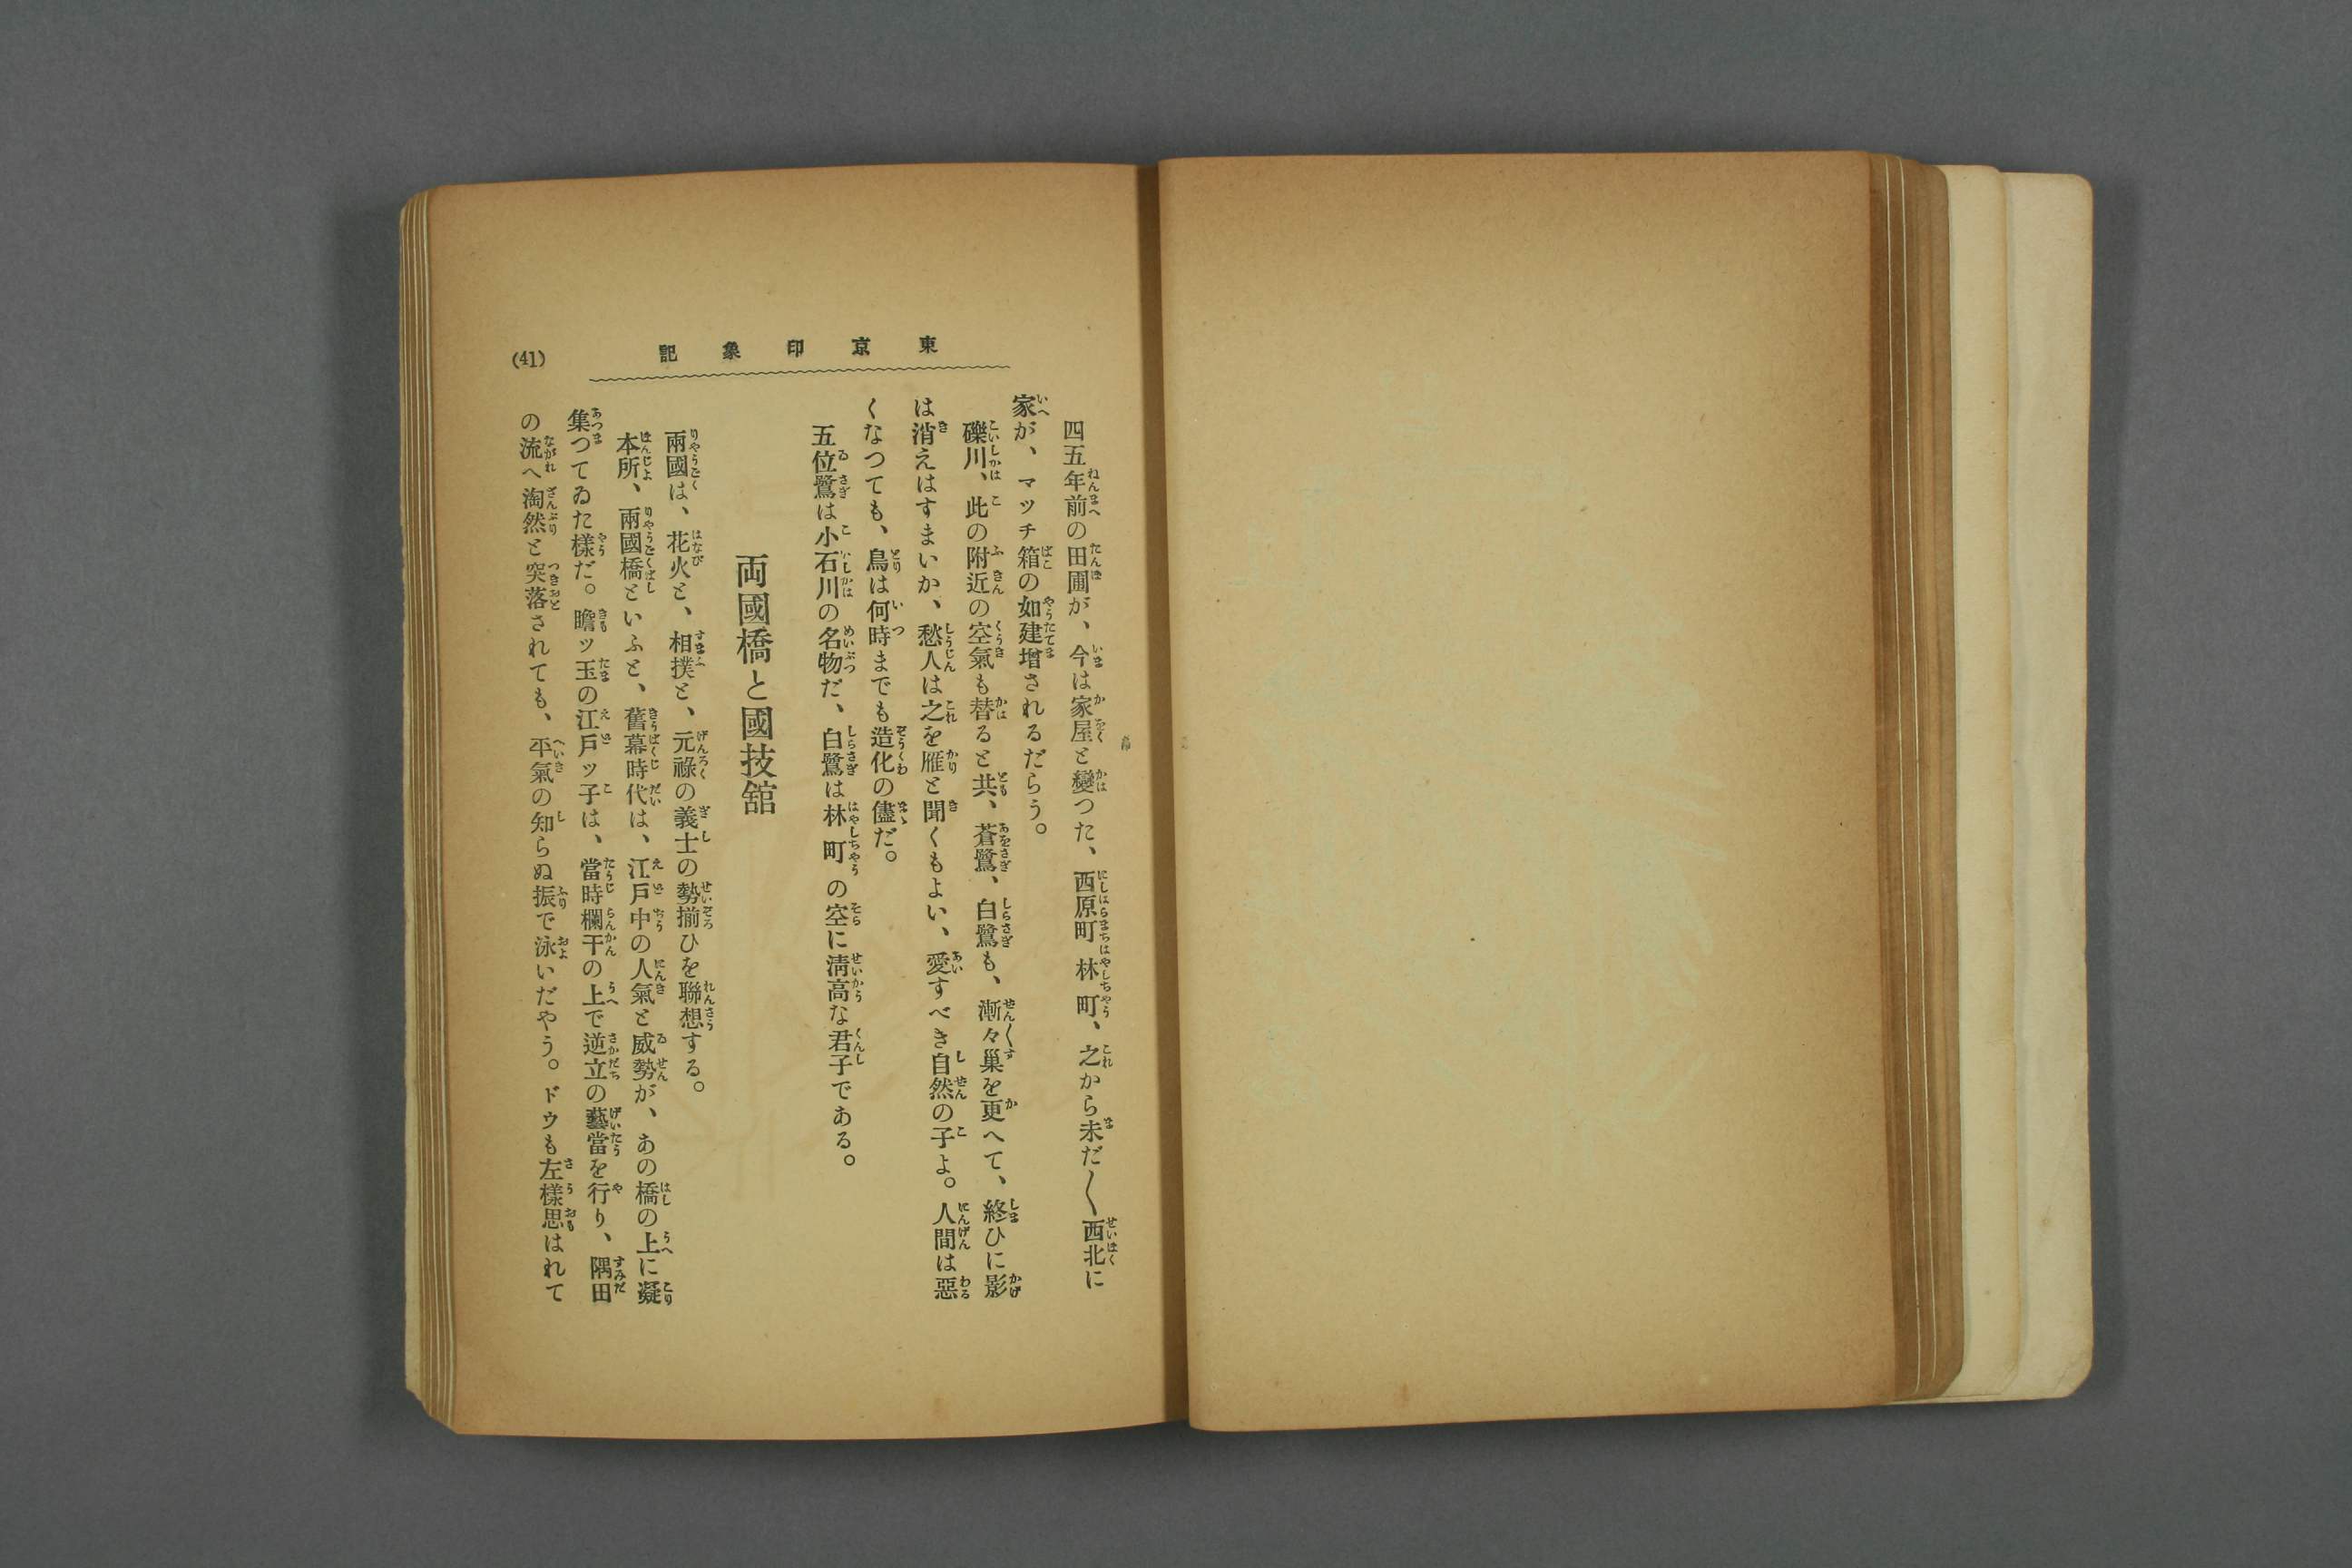 東京印象記
(41)
四五年前の田圃が、今は家屋と變つた、西原町林町、之から未だ〱西北に
家が、マッチ箱の如建增されるだらう。
礫川、此の附近の空氣も替ると共、蒼鷺、白鷺も、漸々巢を更へて、終ひに影
は消えはすまいか、愁人は之を雁と聞くもよい、愛すべき自然の子よ。人間は惡
くなつても、鳥は何時までも造化の儘だ。
五位鷺は小石川の名物だ、白鷺は林町の空に淸高な君子である。
両國橋と國技舘
兩國は、花火と、相撲と、元祿の義士の勢揃ひを聯想する。
本所、兩國橋といふと、舊幕時代は、江戶中の人氣と威勢が、あの橋の上に凝
集つてゐた樣だ。瞻ッ玉の江戶ッ子は、當時欄干の上で逆立の藝當を行り、隅田
の流へ淘然と突落されても、平氣の知らぬ振で泳いだやう。ドウも左樣思はれて